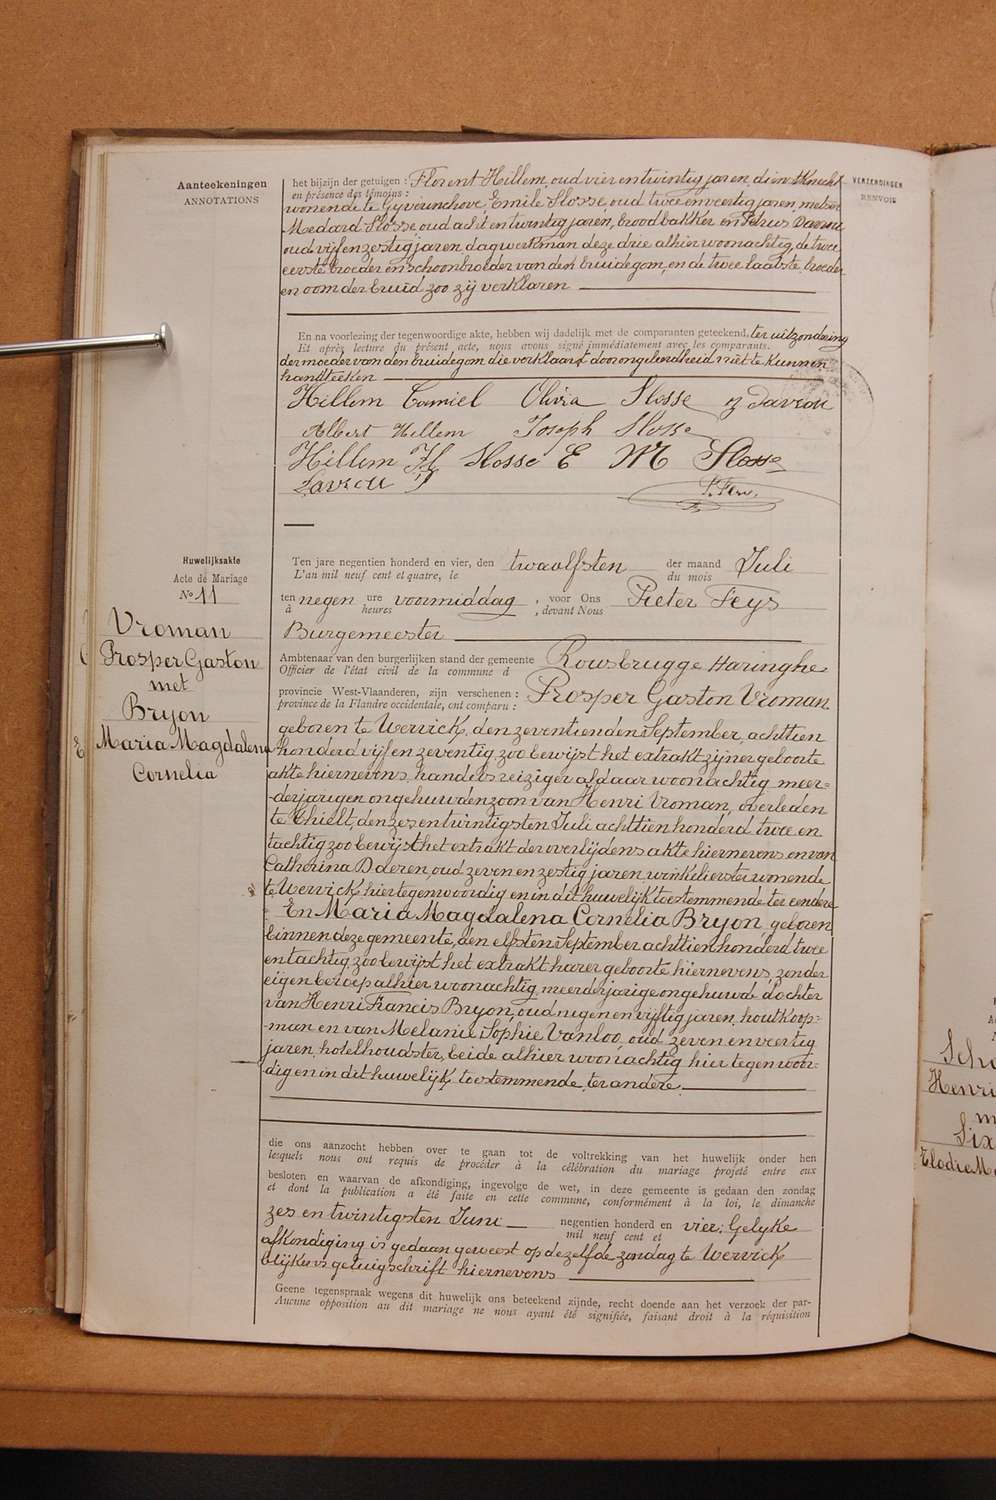 Aanteekeningen
ANNOTATIONS
het bijzijn der getuigen : Florent Hillem, oud vier en twintig jaren, dienstknecht
en présence des témoins :
VERZENDINGEN
RENVOIS
wonende te Gyverinchove, Emile Slosse, oud twee en veertig jaren, metser
Medard Slosse, oud acht en twintig jaren, broodbakker en Petrus Davrou
oud vijf en zestig jaren dagwerkman deze drie alhier woonachtig, de twee
eerste broeder en schoonbroeder van den bruidegom, en de twee laatste broeder
en oom der bruid zoo zij verklaren
En na voorlezing der tegenwoordige akte, hebben wij dadelijk met de comparanten geteekend, ter uitzondering
Et après lecture du présent acte, nous avons signé immédiatement avec les comparants.
der moeder van den bruidegom die verklaart door ongeleerdheid niet te kunnen
handteeken
Hillem Camiel Olivia Slosse Davrou
Albert Hillem Joseph Slosse
Hillem H Slosse E M Slosse
Davrou P. Feys
Huwelijksakte
Acte de Mariage
No 11
Vroman
Prosper Gaston
met
Bryon
Maria Magdalena
Cornelia
Ten jare negentien honderd en vier, den twaalfsten der maand Juli
L'an mil neuf cent et quatre, le du mois
ten negen ure voormiddag, voor Ons Pieter Feys
à heures , devant Nous
Burgemeester
Ambtenaar van den burgerlijken stand der gemeente Rousbrugge Haringhe
Officier de l'état civil de la commune d
provincie West-Vlaanderen, zijn verschenen : Prosper Gaston Vroman
province de la Flandre occidentale, ont comparu :
geboren te Werwick, den zeventienden September, achttien
honderd vijf en zeventig zoo bewijst het extrakt zijner geboorte
akte hiernevens, handelsreiziger aldaar woonachtig meer-
-derjarigen ongehuwden zoon van Henri Vroman, overleden
te Thielt, den zes en twintigsten Juli achttien honderd twee en
tachtig zoo bewijst het extrakt der overlijdens akte hiernevens en van
Catherina Doeren, oud zeven en zestig jaren, winkelierster wonende
te Werwick hier tegenwoordig en in dit huwelijk toestemmende ter eendere
En Maria Magdalena Cornelia Bryon, geboren
binnen deze gemeente, den elfsten September achttien honderd twee
en tachtig, zoo bewijst het extrakt harer geboorte hiernevens, zonder
eigen beroep alhier woonachtig, meerderjarige ongehuwde dochter
van Henri Francis Bryon, oud negen en vijftig jaren, houtkoop-
-man en van Melanie Sophie Vanloo, oud zeven en veertig
jaren, hotelhoudster, beide alhier woonachtig hier tegenwoor-
dig en in dit huwelijk toestemmende, ter andere
die ons aanzocht hebben over te gaan tot de voltrekking van het huwelijk onder hen
lesquels nous ont requis de procéder à la célébration du mariage projeté entre eux
besloten en waarvan de afkondiging, ingevolge de wet, in deze gemeente is gedaan den zondag
et dont la publication a été faite en cette commune, conformément à la loi, le dimanche
zes en twintigsten Juni negentien honderd en vier; Gelyke
mil neuf cent et
afkondiging is gedaan geweest op dezelfde zondag te Werwick
blijkens getuigschrift hiernevens
Geene tegenspraak wegens dit huwelijk ons beteekend zijnde, recht doende aan het verzoek der par-
Aucune opposition au dit mariage ne nous ayant été signifiée, faisant droit à la réquisition
Henri
Six